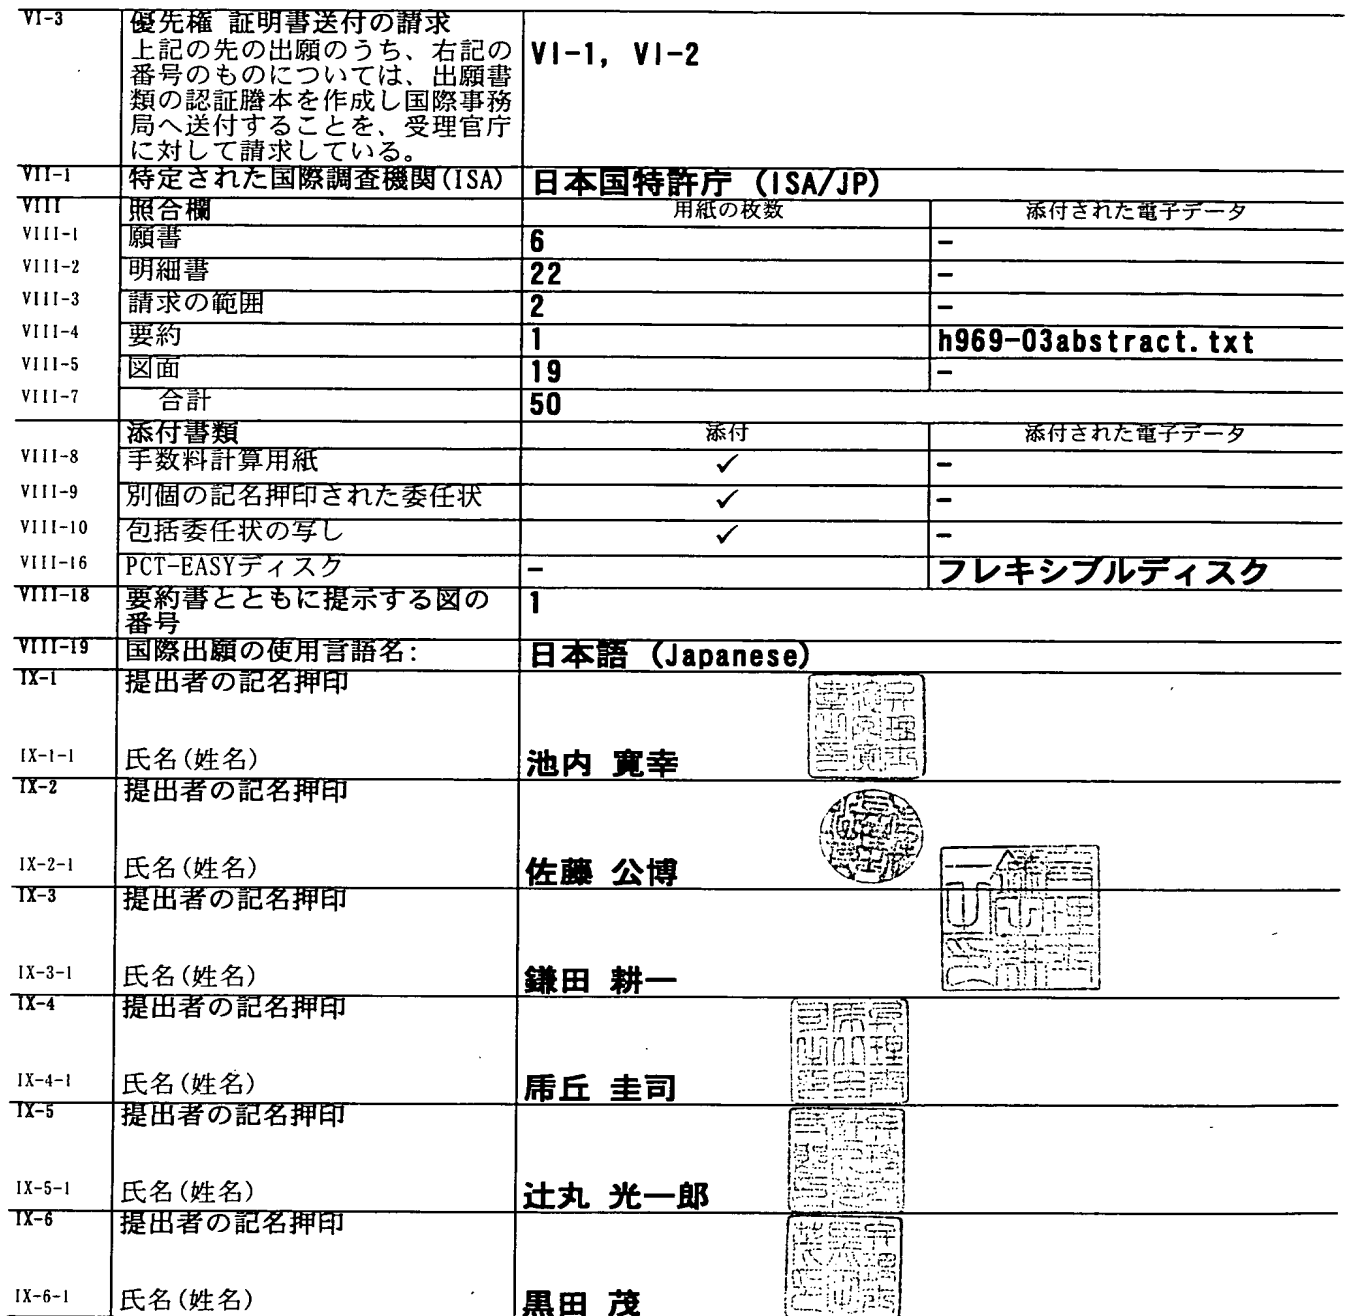 VI-3 優先権 証明書送付の請求
上記の先の出願のうち、右記の VI-1, VI-2
番号のものについては、出願書
類の認証謄本を作成し国際事務
局へ送付することを、受理官庁
に対して請求している。
VII-1 特定された国際調査機関(ISA) 日本国特許庁 (ISA/JP)
VIII 照合欄 用紙の枚数 添付された電子データ
VIII-1 願書 6 -
VIII-2 明細書 22 -
VIII-3 請求の範囲 2 -
VIII-4 要約 1 h969-03abstract.txt
VIII-5 図面 19 -
VIII-7 合計 50
添付書類 添付 添付された電子データ
VIII-8 手数料計算用紙 ✓ -
VIII-9 別個の記名押印された委任状 ✓ -
VIII-10 包括委任状の写し ✓ -
VIII-16 PCT-EASYディスク - フレキシブルディスク
VIII-18 要約書とともに提示する図の 1
番号
VIII-19 国際出願の使用言語名: 日本語 (Japanese)
IX-1 提出者の記名押印
IX-1-1 氏名(姓名) 池内 寛幸
IX-2 提出者の記名押印
IX-2-1 氏名(姓名) 佐藤 公博
IX-3 提出者の記名押印
IX-3-1 氏名(姓名) 鎌田 耕一
IX-4 提出者の記名押印
IX-4-1 氏名(姓名) 乕丘 圭司
IX-5 提出者の記名押印
IX-5-1 氏名(姓名) 辻丸 光一郎
IX-6 提出者の記名押印
IX-6-1 氏名(姓名) 黒田 茂